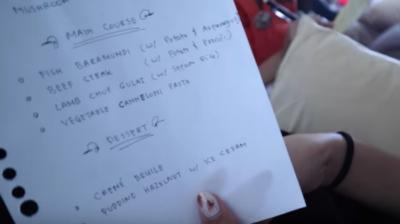 MUSHROOM
MAIN COURSE
FISH BARAMUNDI (W/ POTATO & ASPARAGUS)
BEEF STEAK (W/ POTATO & BROCOLI)
LAMB CHOP GULAI (W/ STEAM RICE)
VEGETABLE CANNELONI PASTA
DESSERT
CREME BRULE
PUDDING HAZELNUT W/ ICE CREAM